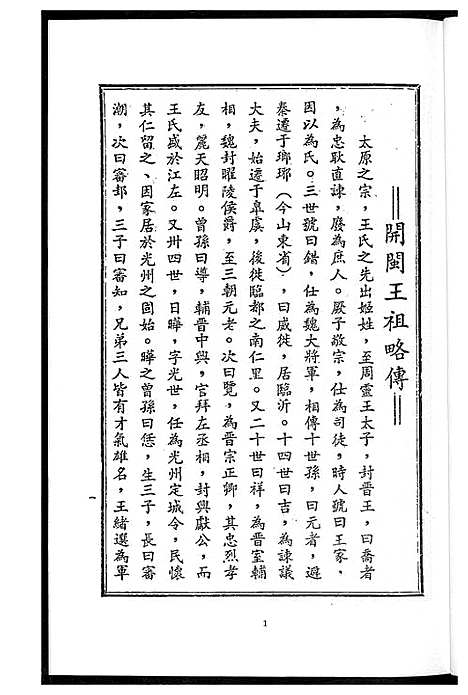 ＝開閩王祖略傳＝
太原之宗，王氏之先出姬姓，至周靈王太子，封晉王，曰喬者
，為忠耿直諫，廢為庶人。厥子敬宗，仕為司徒，時人號曰王家，
因以為氏。三世號曰錯，仕為魏大將軍，相傳十世孫，曰元者，避
秦遷于瑯琊（今山東省），曰威徙，居臨沂。十四世曰吉，為諫議
大夫，始遷于皐虞，後徙臨都之南仁里。又二十世曰祥，為晉室輔
相，魏封睢陵侯爵，至三朝元老。次曰覽，為晉宗正卿，其忠烈孝
友，麗天昭明。曾孫曰導，輔晉中興，官拜左丞相，封興獻公，而
王氏盛於江左。又卅四世，日曄，字光世，任為光州定城令，民懷
其仁留之、因家居於光州之固始。曄之曾孫曰恁，生三子，長曰審
潮，次曰審邽，三子曰審知，兄弟三人皆有才氣雄名，王緒選為軍
一
1